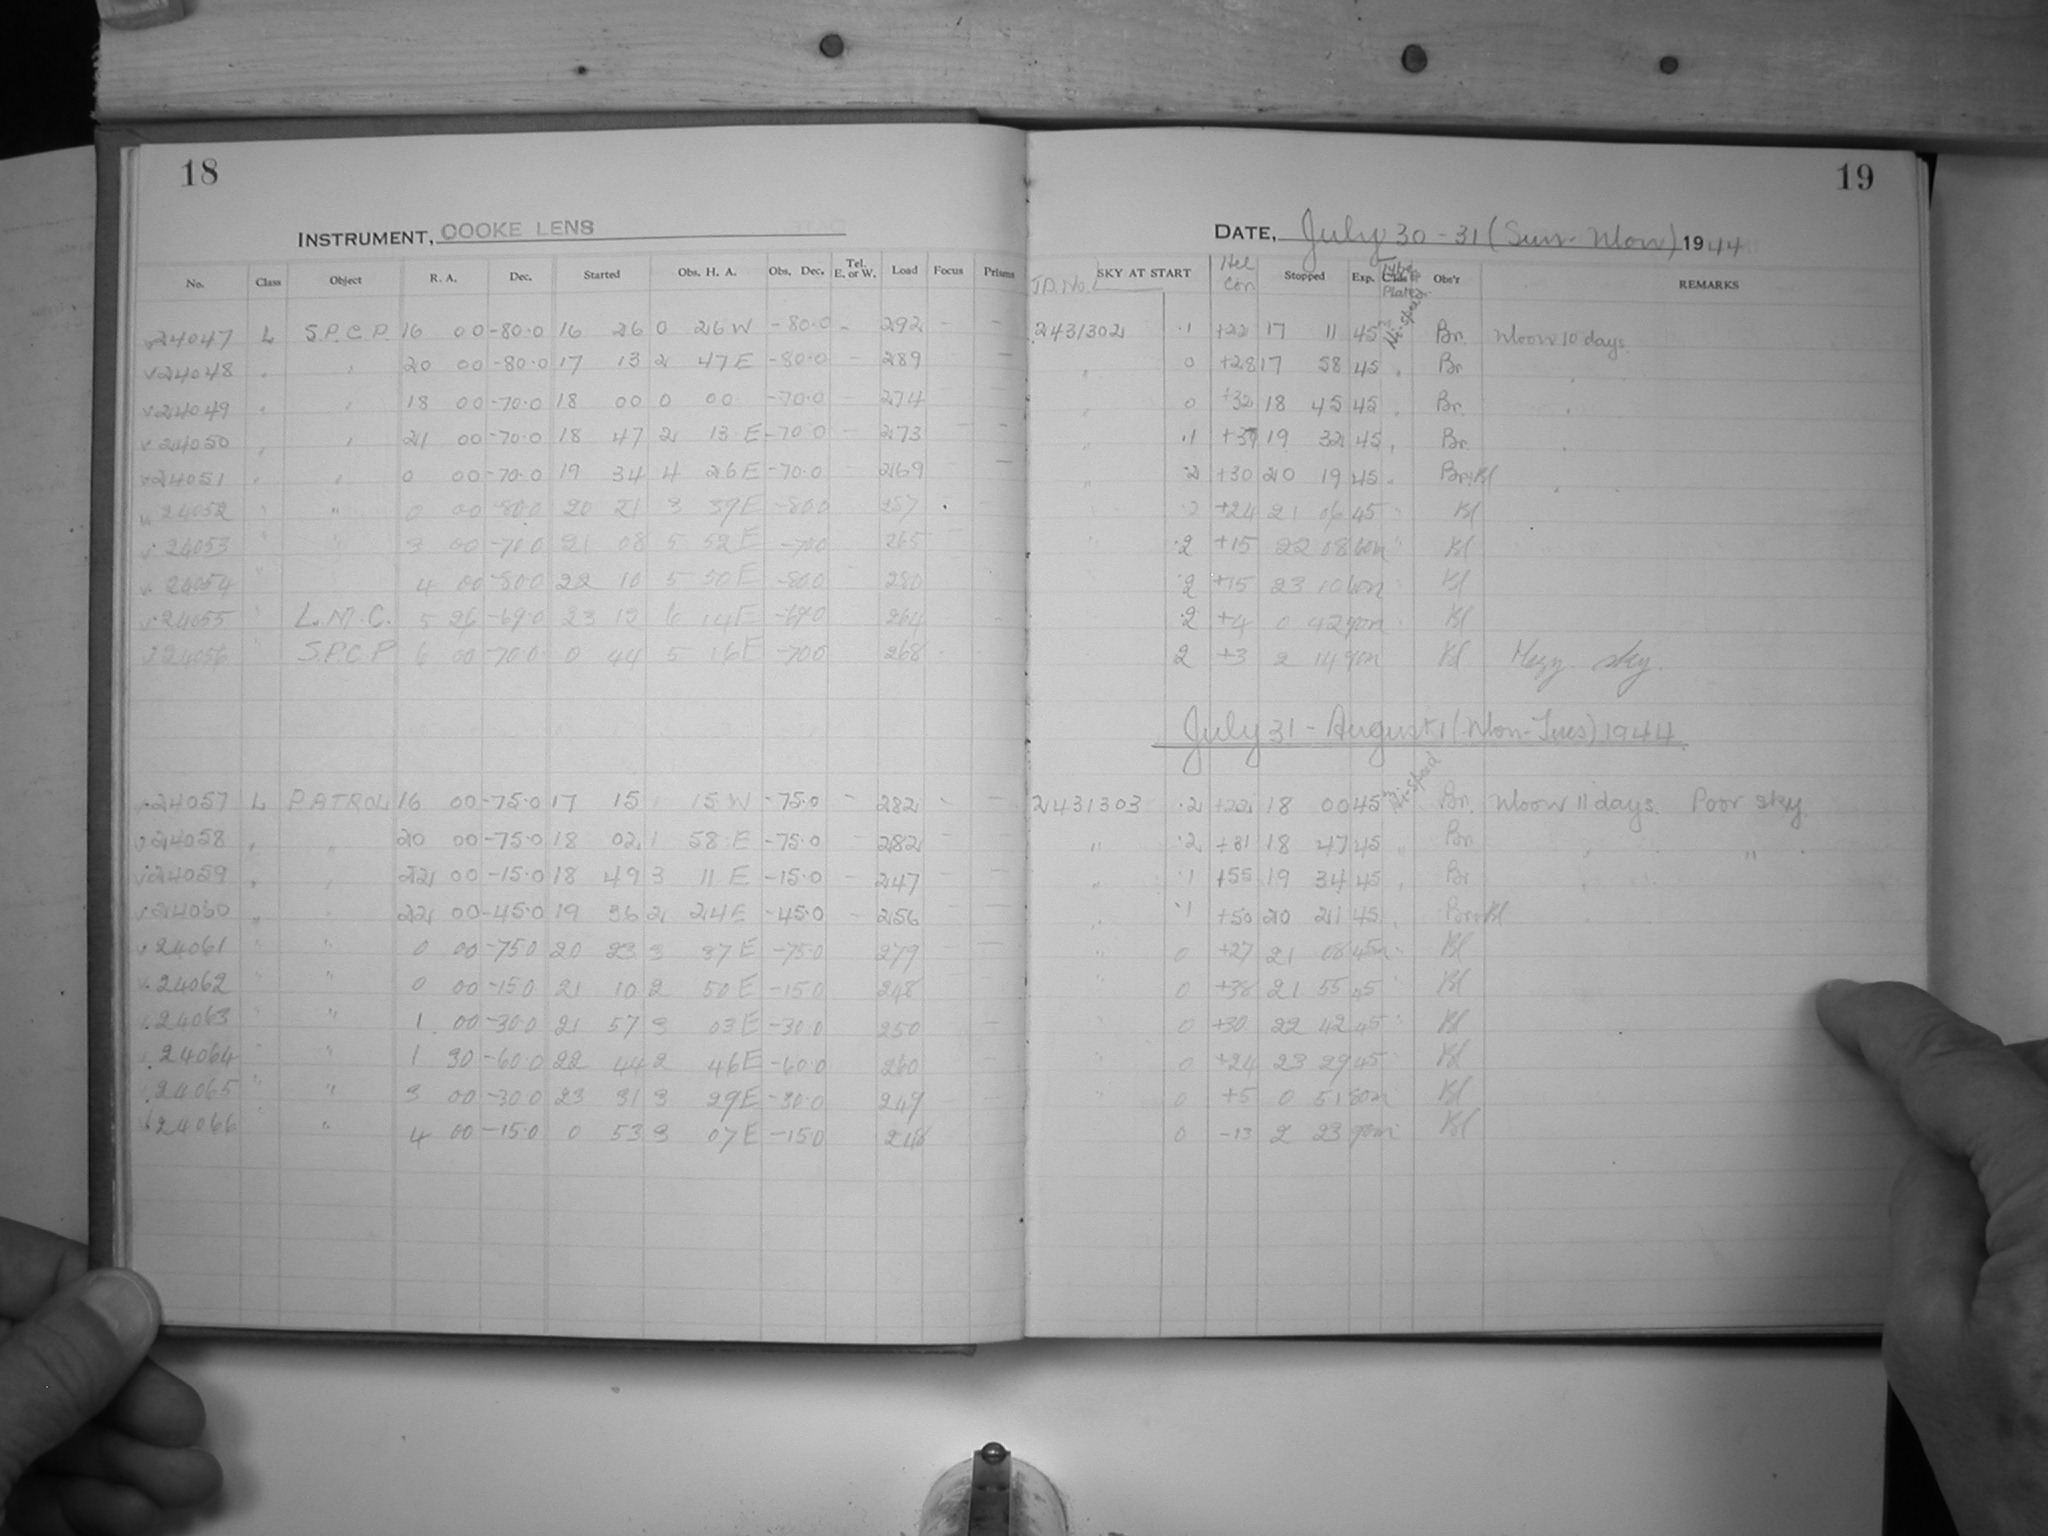 18
INSTRUMENT, COOKE LENS
No. Class Object R. A. Dec. Started Obs. H. A. Obs. Dec. Tel. E. or W. Load Focus Prisms
v24047 L S.P.C.P. 16 00 -80.0 16 26 0 26 W -80.0 - 292 - -
v24048 " " 20 00 -80.0 17 13 2 47 E -80.0 - 289 - -
v24049 " " 18 00 -70.0 18 00 0 00 -70.0 - 274 - -
v24050 " " 21 00 -70.0 18 47 2 13 E -70.0 - 273 - -
v24051 " " 0 00 -70.0 19 34 4 26 E -70.0 - 269 - -
v24052 " " 0 00 -80.0 20 21 3 39 E -80.0 287
v24053 " " 3 00 -70.0 21 08 5 52 E -70.0 265
v24054 " 4 00 -80.0 22 10 5 50 E -80.0 280
v24055 " L.M.C. 5 26 -69.0 23 12 6 14 E -69.0 264
v24056 " S.P.C.P 6 00 -70.0 0 44 5 16 E -70.0 268
v24057 L PATROL 16 00 -75.0 17 15 1 15 W -75.0 - 282 - -
v24058 " " 20 00 -75.0 18 02 1 58 E -75.0 - 282 - -
v24059 " " 22 00 -15.0 18 49 3 11 E -15.0 - 247 - -
v24060 " " 22 00 -45.0 19 36 2 24 E -45.0 - 256 - -
v24061 " " 0 00 -75.0 20 23 3 37 E -75.0 279 - -
v24062 " " 0 00 -15.0 21 10 2 50 E -15.0 248
v24063 " " 1 00 -30.0 21 57 3 03 E -30.0 250
v24064 " " 1 30 -60.0 22 44 2 46 E -60.0 260
v24065 " " 3 00 -30.0 23 31 3 29 E -30.0 249
v24066 " 4 00 -15.0 0 53 3 07 E -15.0
19
DATE, July 30-31 (Sun-Mon) 1944
J.D. No. SKY AT START Hel Cor Stopped Exp. Type Plates Obs'r REMARKS
2431302 .1 +22 17 11 45m Hi-speed Br. Moon 10 days
" 0 +28 17 58 45 " Br "
" 0 +32 18 45 45 " Br. "
" .1 19 32 45 " Br. "
" .2 +30 20 19 45 " Br. Bl "
.2 +24 21 06 45 " Bl
.2 +15 22 08 60m " Bl
.2 +15 23 10 60m " Bl
.2 +4 0 42 90m " Bl
2 +3 2 14 90m Bl Hazy sky.
July 31 - August 1 (Mon-Tues) 1944
2431303 .2 +22 18 00 45m Hi-speed Br. Moon 11 days. Poor sky
" .2 +31 18 47 45 " Br " "
" .1 +55 19 34 45 " Br "
" .1 +50 20 21 45 " Br Bl
" 0 +27 21 08 45m " Bl
" 0 +38 21 55 45 " Bl
" 0 +30 22 42 45 " Bl
" 0 +24 23 29 45 Bl
" 0 +5 0 51 80m Bl
0 -13 2 23 90m Bl